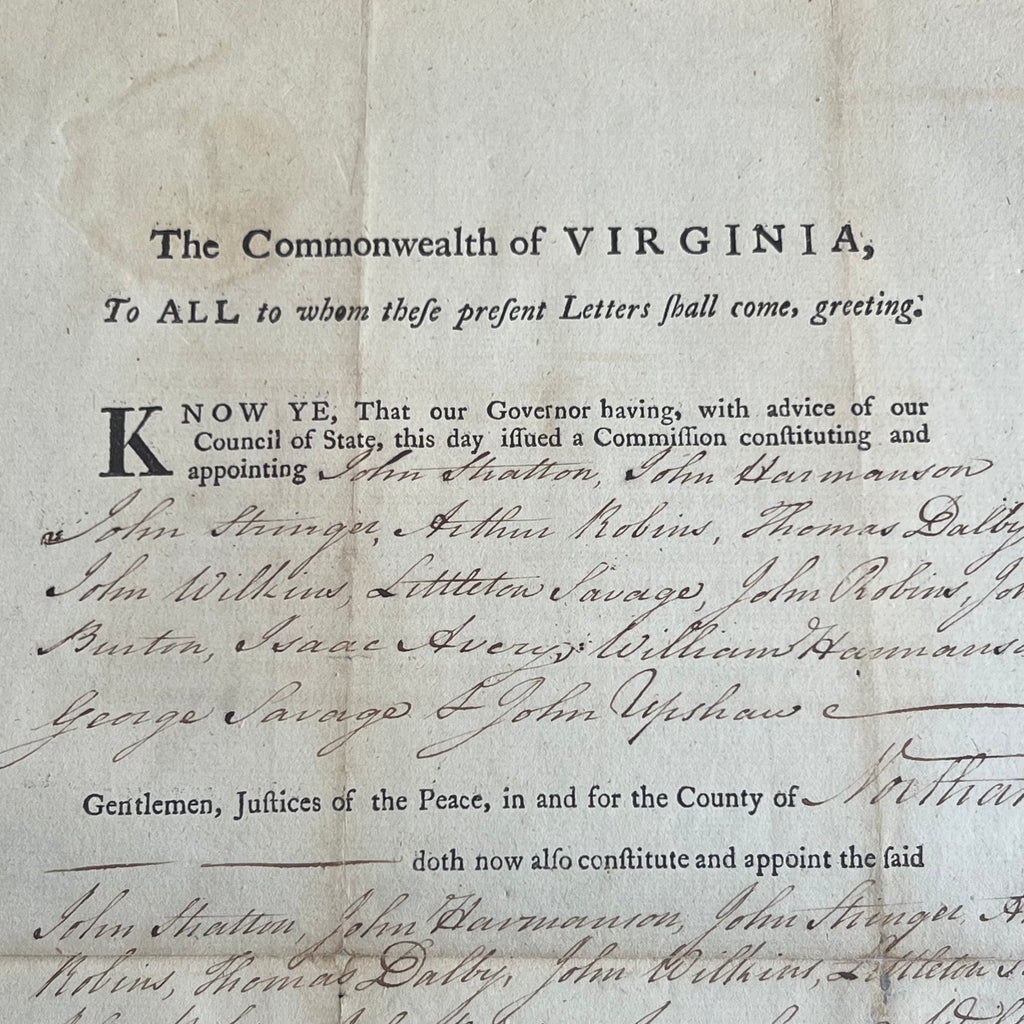 The Commonwealth of VIRGINIA,
To ALL to whom theſe preſent Letters ſhall come, greeting:
KNOW YE, That our Governor having, with advice of our
Council of State, this day iſſued a Commiſſion conſtituting and
appointing John Stratton, John Harmanson
John Stringer, Arthur Robins, Thomas Dalby
John Wilkins, Littleton Savage, John Robins, Jo
Burton, Isaac Avery, William Harmanso
George Savage & John Upshaw
Gentlemen, Juſtices of the Peace, in and for the County of Northa
doth now alſo conſtitute and appoint the ſaid
John Stratton, John Harmanson, John Stringer, A
Robins, Thomas Dalby, John Wilkins, Littleton